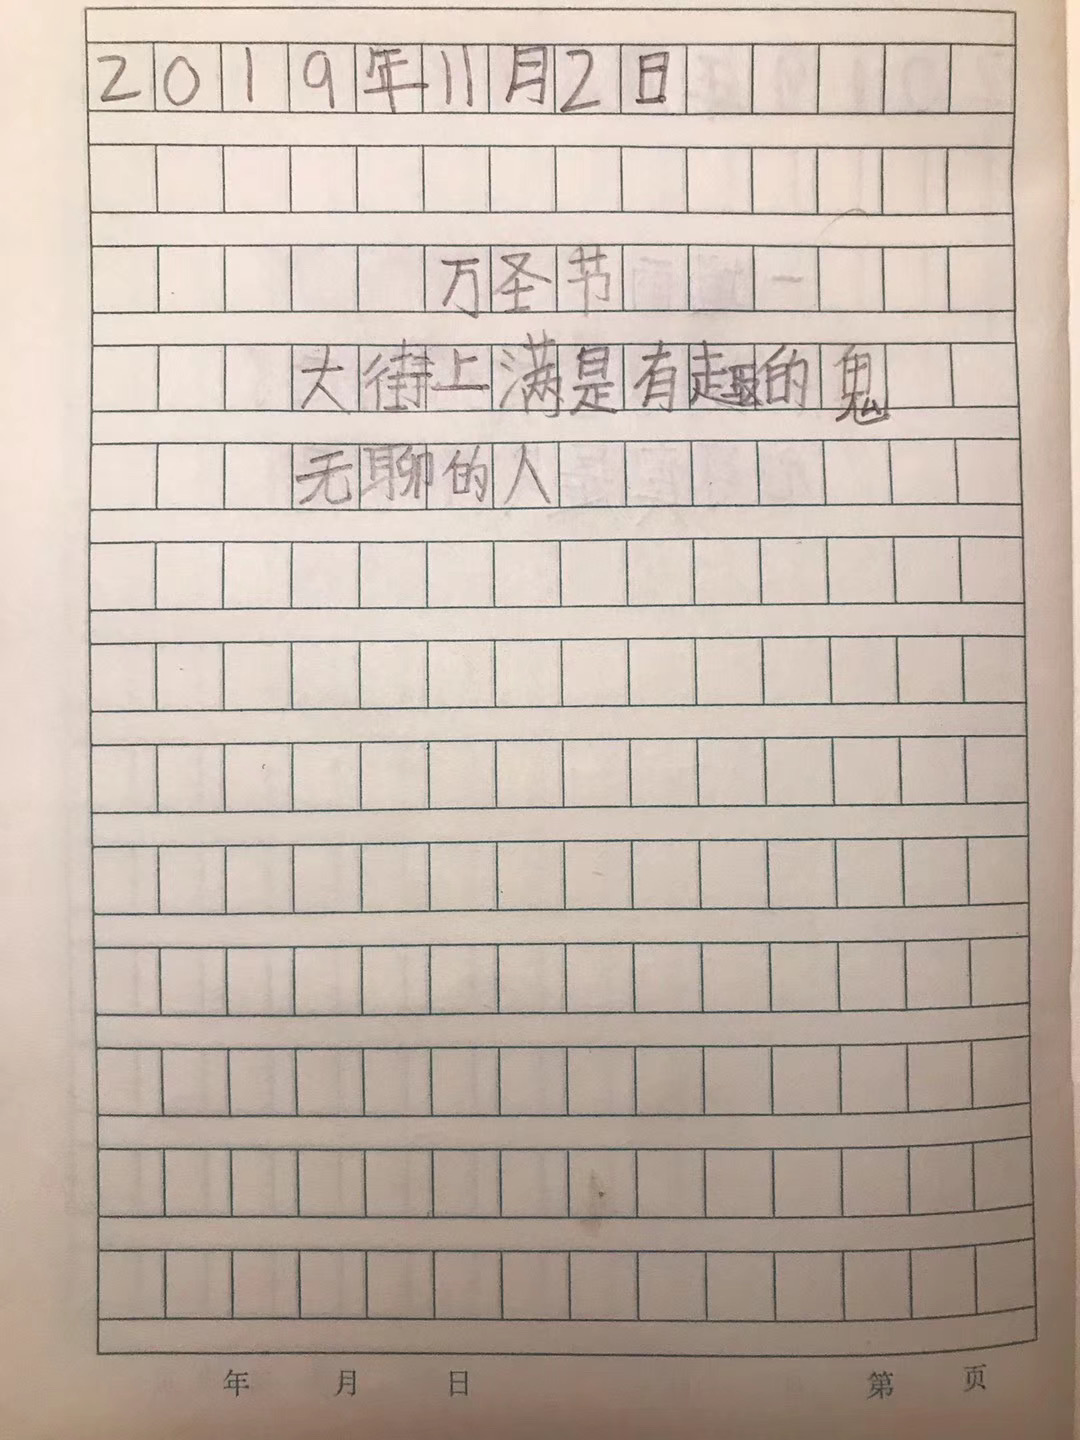 2019年11月2日
万圣节
大街上满是有趣的鬼
无聊的人
年 月 日 第 页